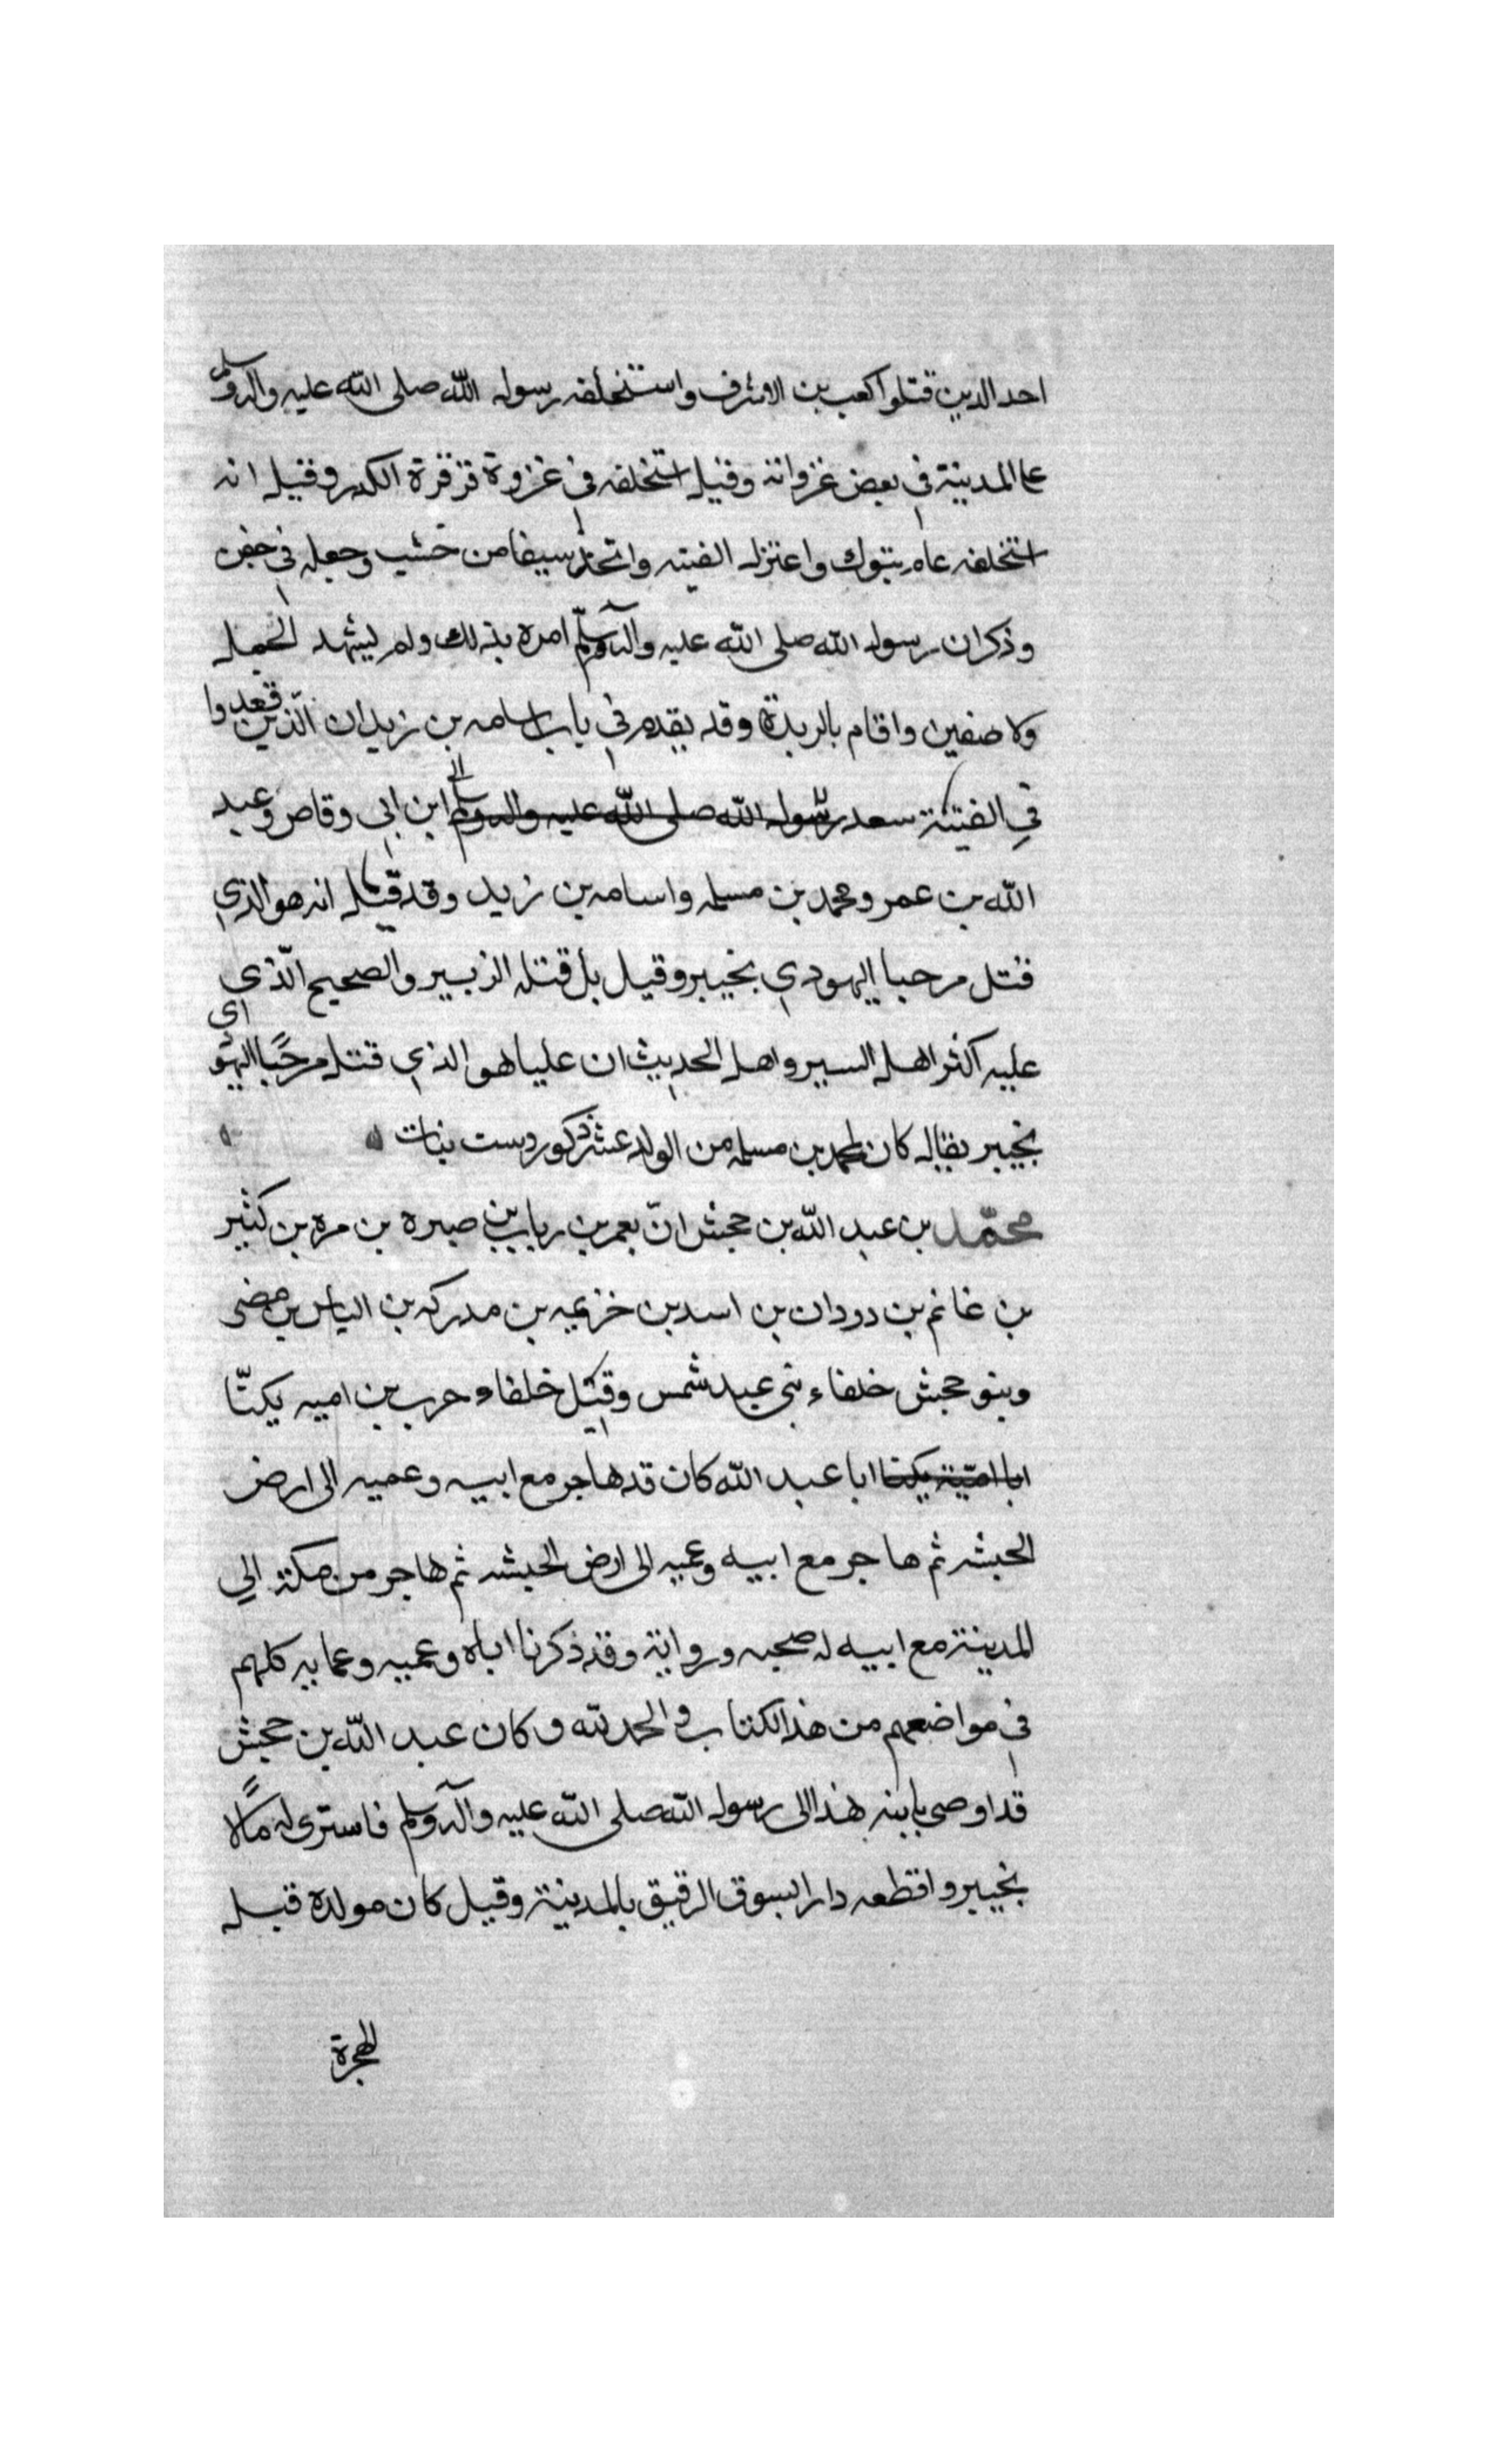 احد الدين قتلوا كعب بن الاشرف واستخلفه رسول الله صلى الله عليه واله وسلم
على المدينة في بعض غزواته وقيل استخلفه في غزوة قرقرة الكدر وقيل انه
استخلفه عام تبوك واعتزل الفتنه واتخذ سيفا من خشب وجعله في جفن
وذكر ان رسول الله صلى الله عليه واله وسلم امره بذلك ولم يشهد الجمل
ولا صفين واقام بالربدة وقد يقدم في باب اسامه بن زيد ان الذين قعدوا
في الفتنة سعد رسول الله صلى الله عليه واله وسلم ابن ابي وقاص وعبد
الله بن عمر ومحمد بن مسلمه واسامه بن زيد وقد قيل انه هو الذي
قتل مرحبا اليهودي بخيبر وقيل بل قتله الزبير والصحيح الّذي
عليه اكثر اهل السير واهل الحديث ان عليا هو الذي قتل مرحبًا اليهو
بخيبر يقال كان لمحمد بن مسلمه من الولد عشر ذكور وست بنات
محمّد بن عبد الله بن جحش بن يعمر بن رباب بن صبره بن مره بن كثير
بن غانم بن دودان بن اسد بن خزيمه بن مدركه بن الياس بن مضى
وبنو جحش خلفاء بني عبد شمس وقيل خلفاء حرب بن اميه يكنّا
ابا اميّة يكنا ابا عبد الله كان قد هاجر مع ابيه وعميه الى ارض
الحبشه ثم هاجر مع ابيه وعميه الى ارض الحبشه ثم هاجر من مكة الي
المدينة مع ابيه له صحبه ورواية وقد ذكرنا اباه وعميه وعمايه كلهم
في مواضعهم من هذا لكتاب والحمد لله وكان عبد الله بن جحش
قد اوصى بابنه هذا الى رسول الله صلى الله عليه وآله وسلم فاسترى له مالًا
بخيبر واقطعه دارا لبسوق الرقيق بالمدينة وقيل كان مولده قبل
الهجرة